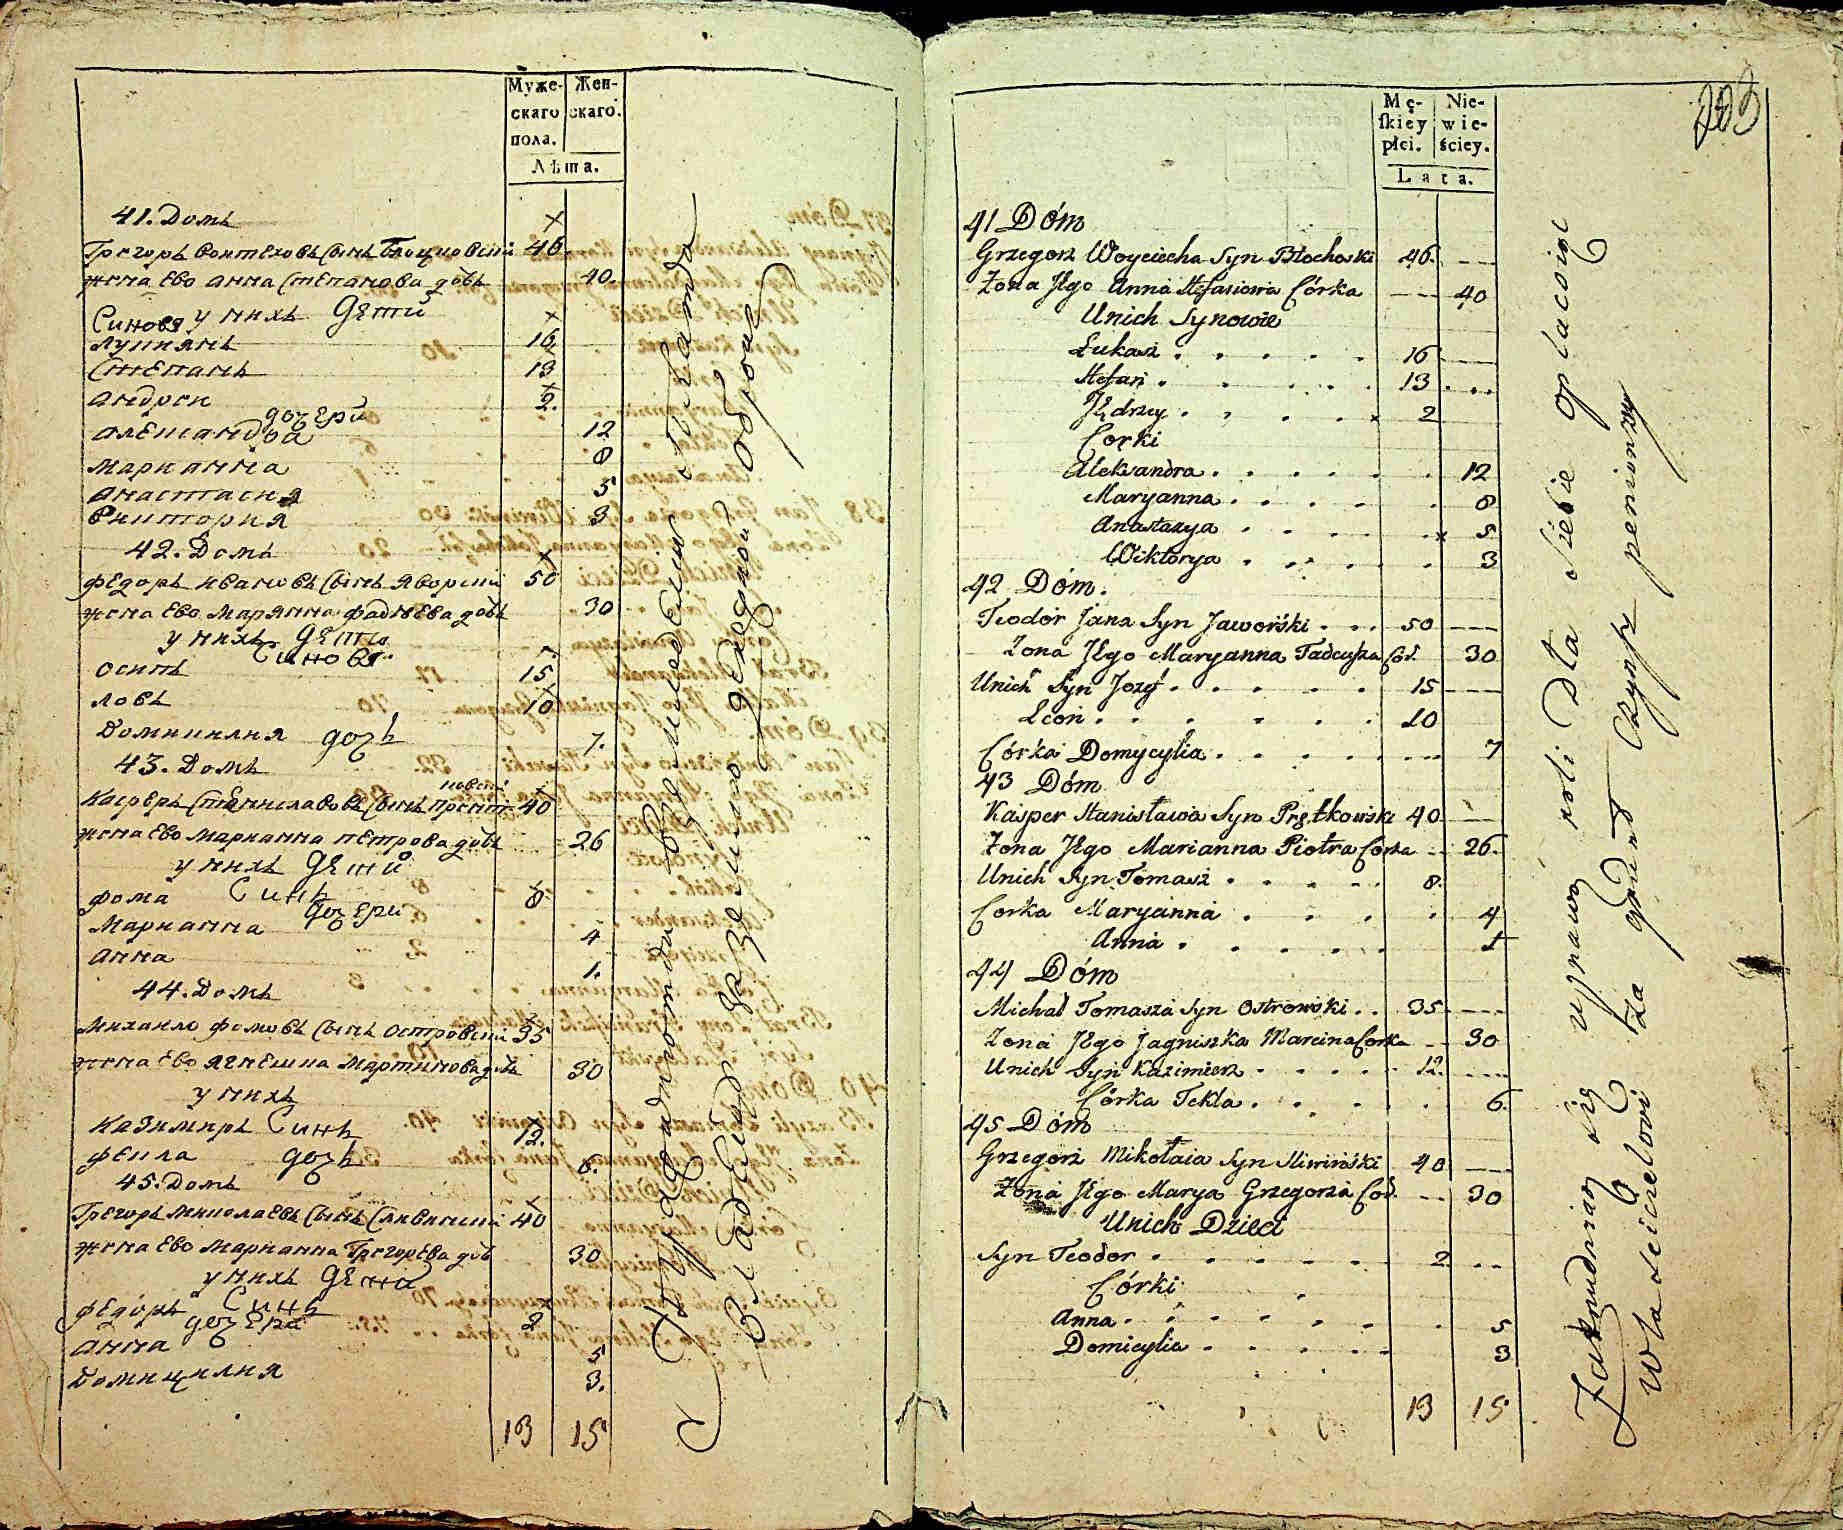 Муже-
скаго
пола.
Жен-
скаго.
Лѣта.
41. Домъ
Грегоръ Воитеховъ Сынъ Блоцковскй 46.
жена Ево Анна Степанова дочь 40.
у нихъ Дети
Синовя
Лукиянъ 16.
Степанъ 13
Андреи 2.
дочери
Алеѯандра 12
Марианна 8
Анастасия 5
Виктория 3
42. Домъ
Федоръ Ивановъ Сынъ Яворски 50
жена Ево Марянна Фадѣева дочь 30
у нихъ Дети
Синовя
Осипъ 15
Ловъ 10
Домникилия дочъ 7.
43. Домъ
Касперъ Станиславовъ Сынъ Прент
ковски 40
жена Ево Марианна Петрова дочь 26
у нихъ Дети
Фома Синъ 8
дочери
Марианна 4
Анна 1.
44. Домъ
Михаило Фомовъ Сынъ Островски 35
жена Ево Ягнешка Мартинова дочь 30
у нихъ
Казимиръ Синъ 12.
Фекла дочъ 6.
45. Домъ
Грегоръ Миколаевъ Сынъ Сливински 40
жена Ево Марианна Грегорева дочь 30
у нихъ Дети
Федоръ Синъ 2
дочери
Анна 5
Домицилия 3.
13 15
Упражняютца в земледелии и платят
Владелцу за землю денежной оброк
203
Mę-
ſkiey
płci.
Nie-
wie-
ściey.
Lata.
41 Dóm
Grzegorz Woyciecha Syn Błochoski 46.
Zona Jego Anna Stefanowa Córka 40
Unich Synowie
Łukasz 16
Stefan 13
Jędrzey 2
Corki
Aleksandra 12
Maryanna 8
Anastazya 5
Wiktorya 3
42 Dóm.
Teodor Jana Syn Jaworśki 50
Zona Jego Maryanna Tadeusza Cór. 30
Unich Syn Jozef 15
Leon 10
Córka Domycylia 7
43 Dóm
Kasper Stanisława Syn Prętkowski 40
Zona Jego Marianna Piotra Corka 26.
Unich Syn Tomasz 8.
Corka Maryanna 4
Anna 1
44 Dóm
Michał Tomasza Syn Ostrowski 35
Zona Jego Jagniszka Marcina Corka 30
Unich Syn Kazimierz 12.
Córka Tekla 6.
45 Dóm
Grzegorz Mikołaia Syn Sliwiński 40
Zona Jego Marya Grzegorza Cór. 30
Unich Dzieci
Syn Teodor 2
Córki
Anna 5
Domicylia 3
13 15
Zatrudniaią się uprawą roli Dla siebie opłacaiąc
Właścicielowi za grunt Czynsz pieniężny